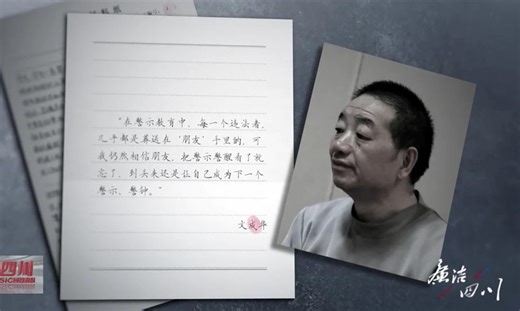 “在警示教育中,每一个违法者,
几乎都是葬送在‘朋友’手里的,可
我仍然相信朋友,把警示警醒看了就
忘了,到头来还是让自己成为下一个
警示、警钟。”
文成华
四川
SICHUAN
廉洁
四川